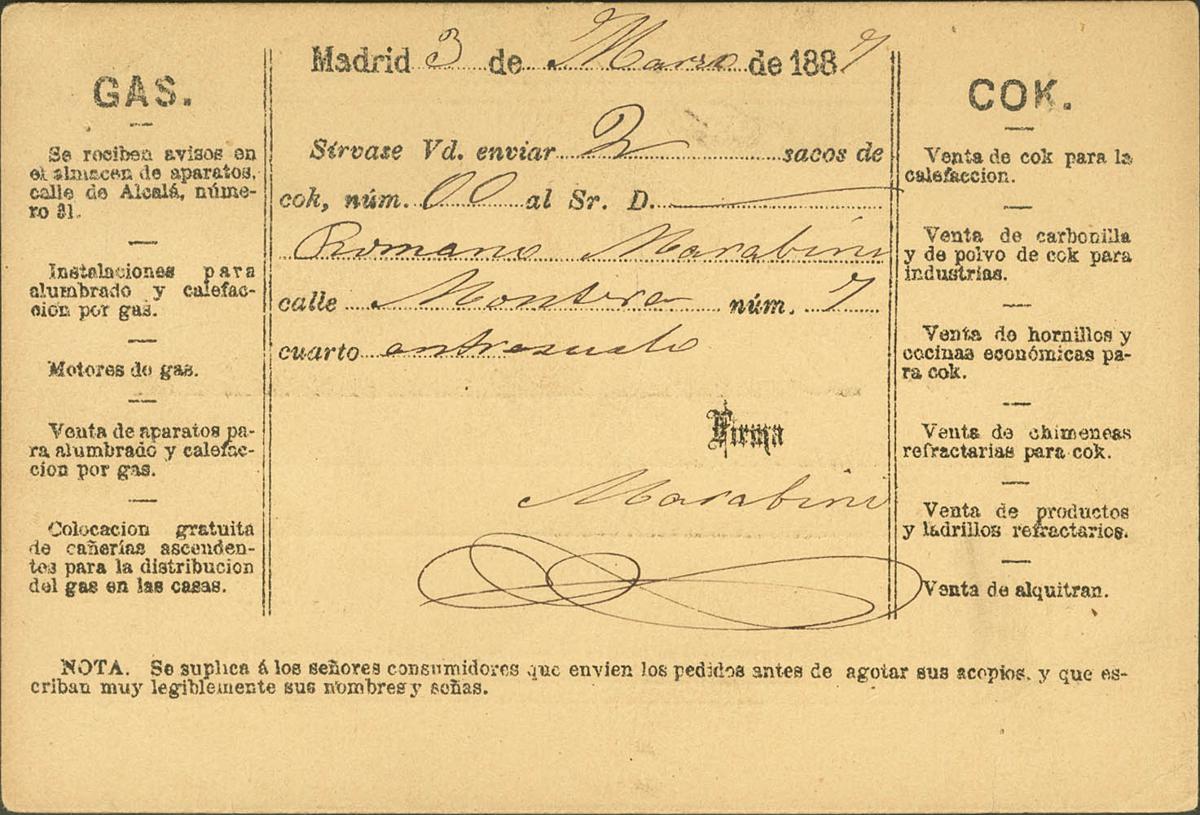 GAS.
Se reciben avisos en
el almacen de aparatos,
calle de Alcalá, núme-
ro 31.
Instalaciones para
alumbrado y calefac-
cion por gas.
Motores de gas.
Venta de aparatos pa-
ra alumbrado y calefac-
cion por gas.
Colocacion gratuita
de cañerías ascenden-
tes para la distribucion
del gas en las casas.
Madrid 3 de Marzo de 1887
Sírvase Vd. enviar 2 sacos de
cok, núm. 00 al Sr. D.
Romano Marabini
calle Montera núm. 7
cuarto entresuelo
Firma
Marabini
COK.
Venta de cok para la
calefaccion.
Venta de carbonilla
y de polvo de cok para
industrias.
Venta de hornillos y
cocinas económicas pa-
ra cok.
Venta de chimeneas
refractarias para cok.
Venta de productos
y ladrillos refractarios.
Venta de alquitran.
NOTA. Se suplica á los señores consumidores que envien los pedidos antes de agotar sus acopios, y que es-
criban muy legiblemente sus nombres y señas.